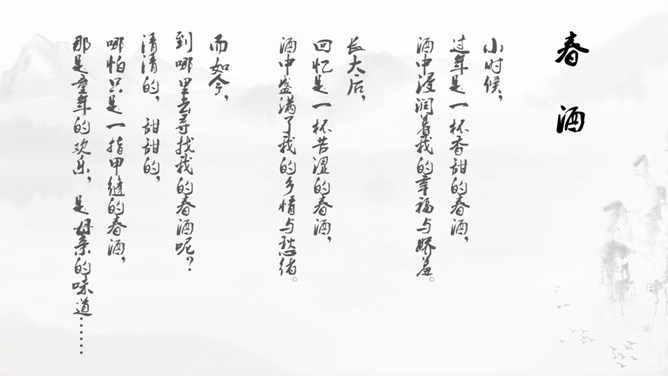 春酒
小时候，
过年是一杯香甜的春酒，
酒中浸润着我的幸福与娇羞。
长大后，
回忆是一杯苦涩的春酒，
酒中盛满了我的乡情与愁绪。
而如今，
到哪里去寻找我的春酒呢？
清清的，甜甜的，
哪怕只是一指甲缝的春酒，
那是童年的欢乐，是母亲的味道……